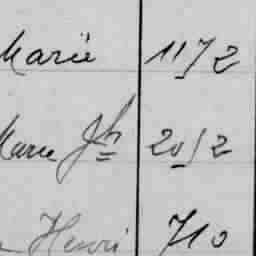 Marie 1172
Marie Jh 20/2
Henri 710